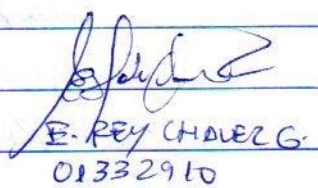 E. REY CHAVEZ G.
01332910